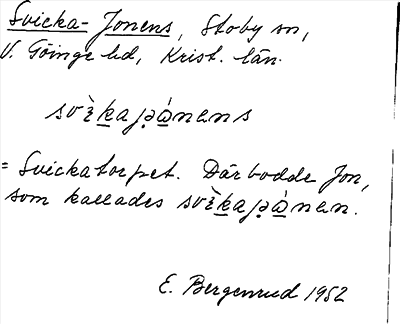 Svicka-Jonens, Stoby sn,
V. Göinge hd, Krist. län.
svèkapànens
= Svickatorpet. Där bodde Jon,
som kallades svèkapànen.
E. Bergenrud 1952